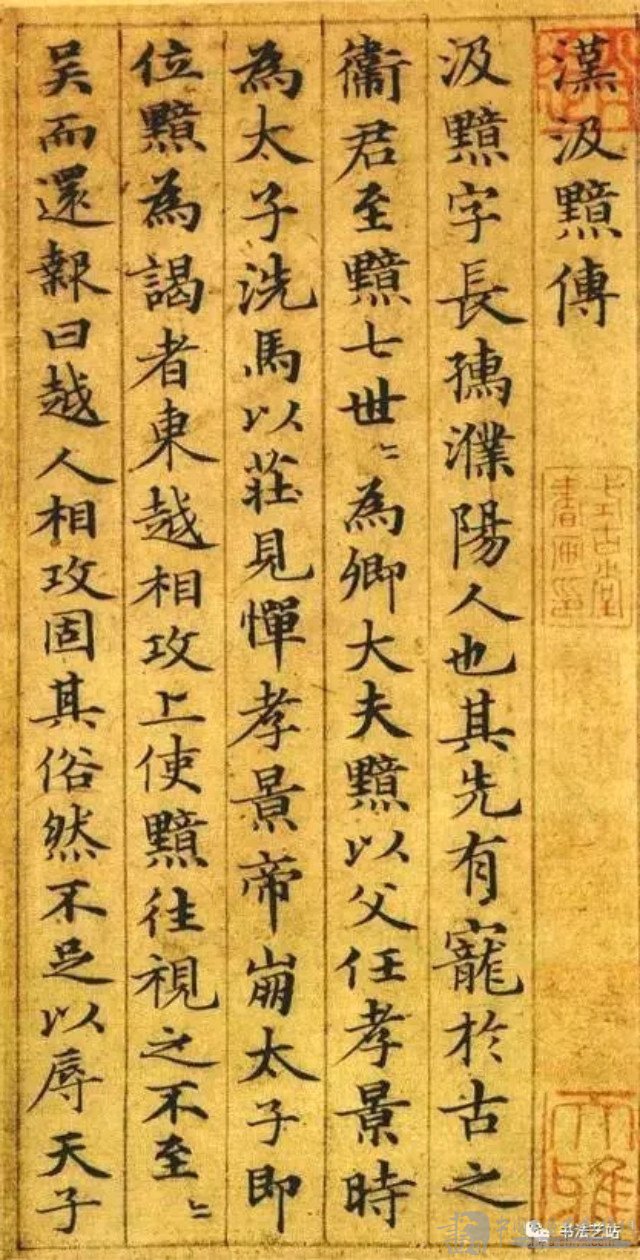 漢汲黯傳
汲黯字長孺濮陽人也其先有寵於古之
衞君至黯七世〻為卿大夫黯以父任孝景時
為太子洗馬以莊見憚孝景帝崩太子即
位黯為謁者東越相攻上使黯往視之不至〻
吴而還報曰越人相攻固其俗然不足以辱天子
式古堂
書畫印
书法艺站